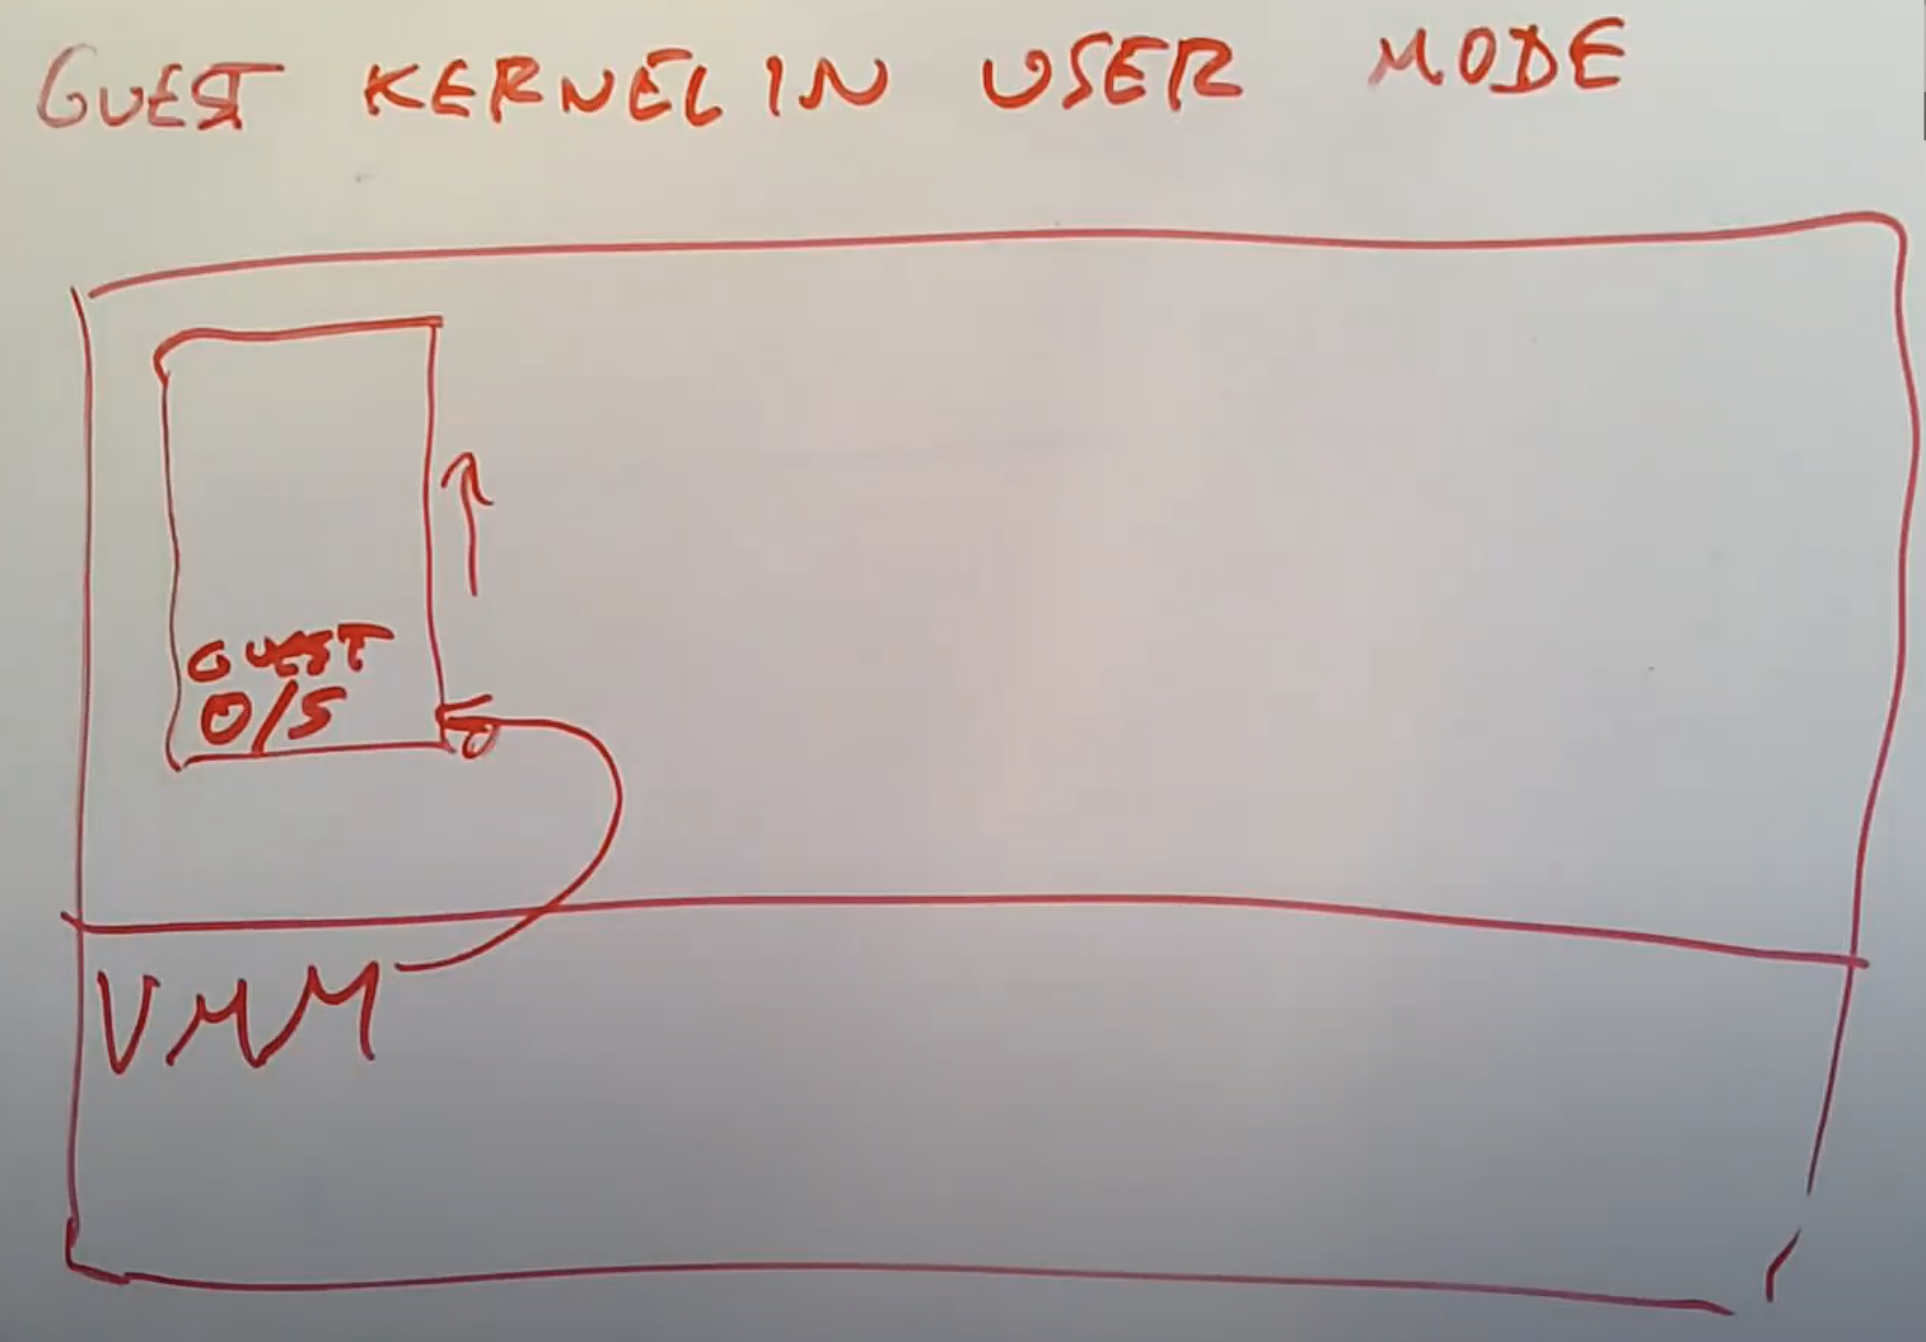 GUEST KERNEL IN USER MODE
GUEST
O/S
0
VMM